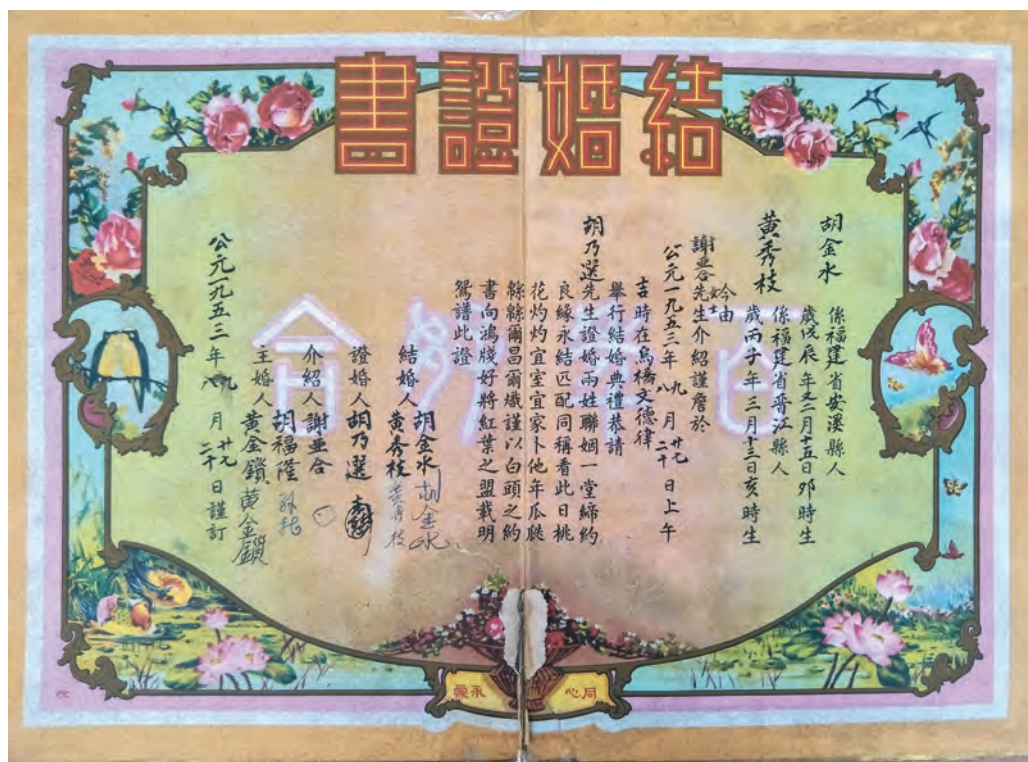 結婚證書
胡金水
係福建省安溪縣人
歲戊辰年又二月十五日卯時生
黃秀枝
係福建省晋江縣人
歲丙子年三月十三日亥時生
謝亞合先生介紹謹詹於
公元一九五三年九八月廿九二十日上午
吉時在烏橋文德律
舉行結婚典禮恭請
胡乃選先生證婚兩姓聯姻一堂締約
良緣永結匹配同稱看此日桃
花灼灼宜室宜家卜他年瓜瓞
緜緜爾昌爾熾謹以白頭之約
書向鴻牋好將紅葉之盟載明
鴛譜此證
結婚人胡金水胡金水
黃秀枝黃秀枝
證婚人胡乃選
介紹人謝亞合
胡福隆
主婚人黃金鎖黃金鎖
公元一九五三年八九月廿九二十日謹訂
百年好合
同心
永愛